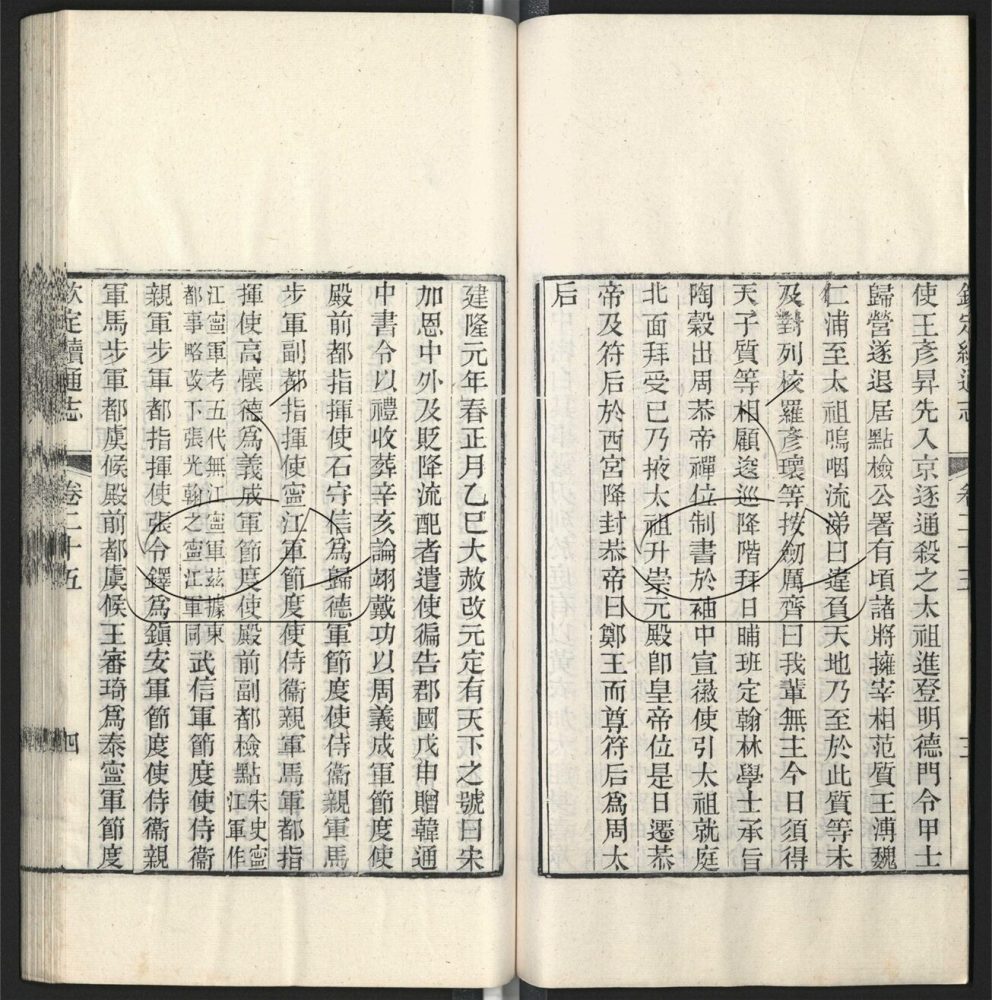 使王彥昇先入京逐通殺之太祖進登明德門令甲士
歸營遂退居點檢公署有項諸將擁宰相范質王溥魏
仁浦至太祖嗚咽流涕曰違負天地乃至於此質等未
及對列校羅彥瓌等按劍厲齊曰我輩無主今日須得
天子質等相顧逡巡降階拜日晡班定翰林學士承旨
陶穀出周恭帝禪位制書於袖中宣徽使引太祖就庭
北面拜受已乃掖太祖升崇元殿卽皇帝位是日遷恭
帝及符后於西宮降封恭帝曰鄭王而尊符后爲周太
后
建隆元年春正月乙巳大赦改元定有天下之號曰宋
加恩中外及貶降流配者遣使徧告郡國戊申贈韓通
中書令以禮收葬辛亥論翊戴功以周義成軍節度使
殿前都指揮使石守信爲歸德軍節度使侍衞親軍馬
步軍副都指揮使寧江軍節度使侍衞親軍馬軍都指
揮使高懷德爲義成軍節度使殿前副都檢點宋史寧江軍作
江寧軍考五代無江寧軍茲據東都事略改下張光翰之寧江軍同武信軍節度使侍衞
親軍步軍都指揮使張令鐸爲鎭安軍節度使侍衞親
軍馬步軍都虞候殿前都虞候王審琦爲泰寧軍節度
欽定續通志 卷二十五 四